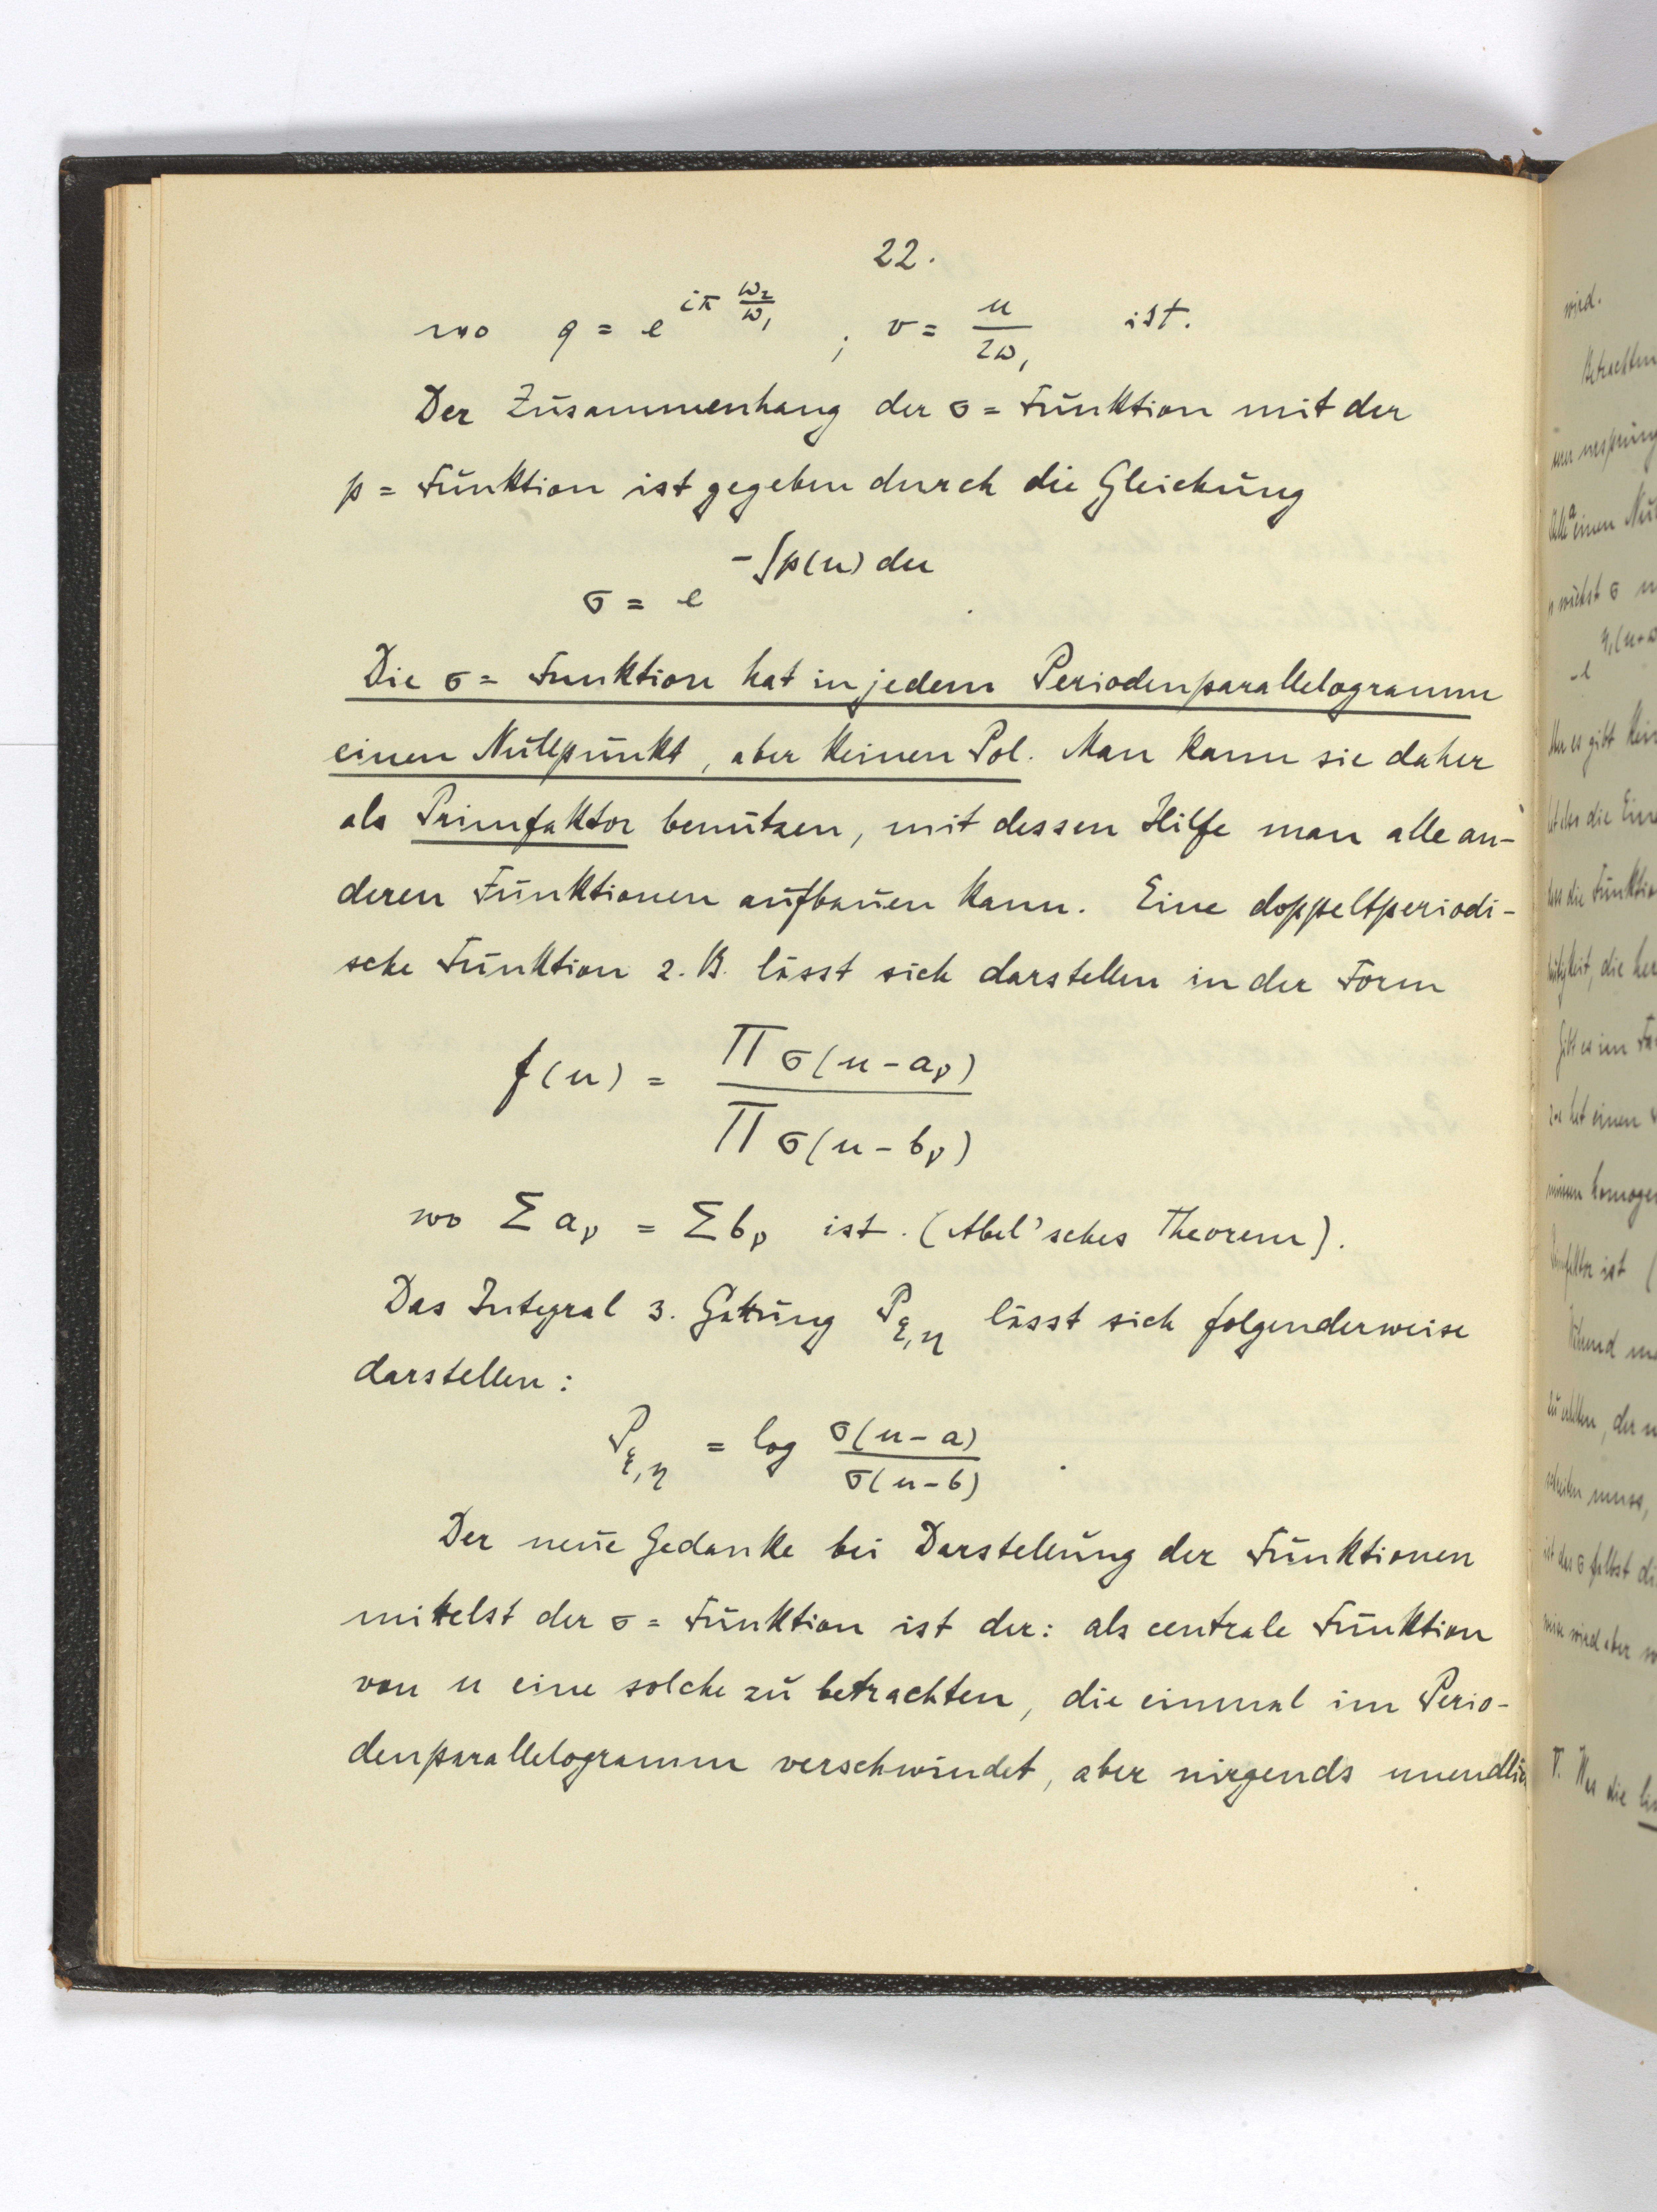 22.
wo q = e^{iπ ω₂/ω₁} ; v = u/2ω₁ ist.
Der Zusammenhang der σ = Funktion mit der
p = Funktion ist gegeben durch die Gleichung
σ = e^{-∫p(u) du}.
Die σ = Funktion hat in jedem Periodenparallelogramm
einen Nullpunkt, aber keinen Pol. Man kann sie daher
als Primfaktor benutzen, mit dessen Hilfe man alle an-
deren Funktionen aufbauen kann. Eine doppeltperiodi-
sche Funktion z. B. lässt sich darstellen in der Form
f(u) = Π σ(u - aᵨ) / Π σ(u - bᵨ)
wo Σ aᵨ = Σ bᵨ ist. (Abel'sches Theorem).
Das Integral 3. Gattung P_{ξ,η} lässt sich folgenderweise
darstellen:
P_{ξ,η} = log σ(u - a) / σ(u - b).
Der neue Gedanke bei Darstellung der Funktionen
mittelst der σ = Funktion ist der: als centrale Funktion
von u eine solche zu betrachten, die einmal im Perio-
denparallelogramm verschwindet, aber nirgends unendlich
wird.
Betrachten
einen Nul
es gibt
die Funktion
die her
hat einen
homogen
ist (
muss,
selbst di
wird aber
V. Was die